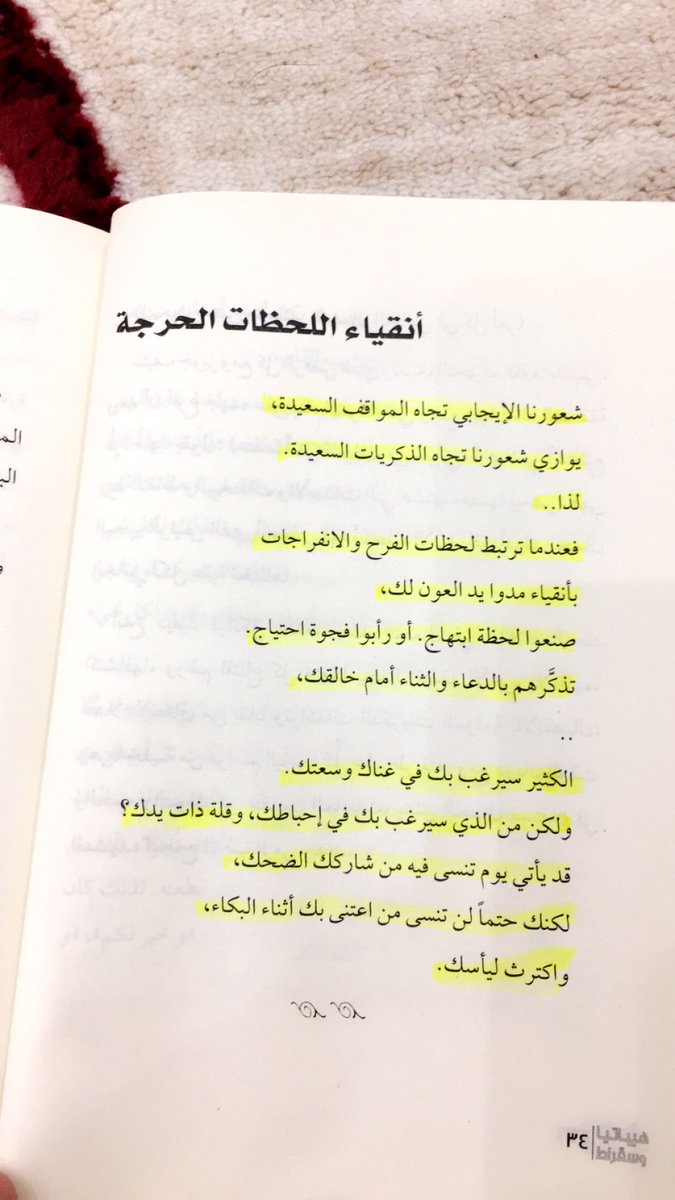 أنقياء اللحظات الحرجة
شعورنا الإيجابي تجاه المواقف السعيدة،
يوازي شعورنا تجاه الذكريات السعيدة.
لذا..
فعندما ترتبط لحظات الفرح والانفراجات
بأنقياء مدوا يد العون لك،
صنعوا لحظة ابتهاج. أو رأبوا فجوة احتياج.
تذكَّرهم بالدعاء والثناء أمام خالقك،
..
الكثير سيرغب بك في غناك وسعتك.
ولكن من الذي سيرغب بك في إحباطك، وقلة ذات يدك؟
قد يأتي يوم تنسى فيه من شاركك الضحك،
لكنك حتماً لن تنسى من اعتنى بك أثناء البكاء،
واكترث ليأسك.
هيباتيا
وسقراط
٣٤